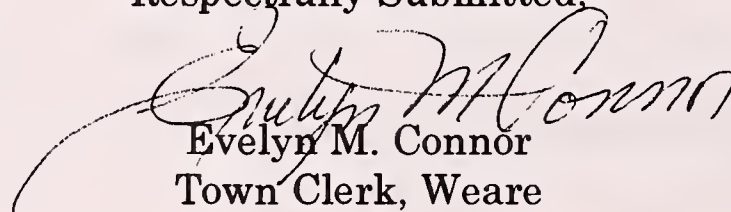 Respectfully Submitted,
Evelyn M Connor
Evelyn M. Connor
Town Clerk, Weare